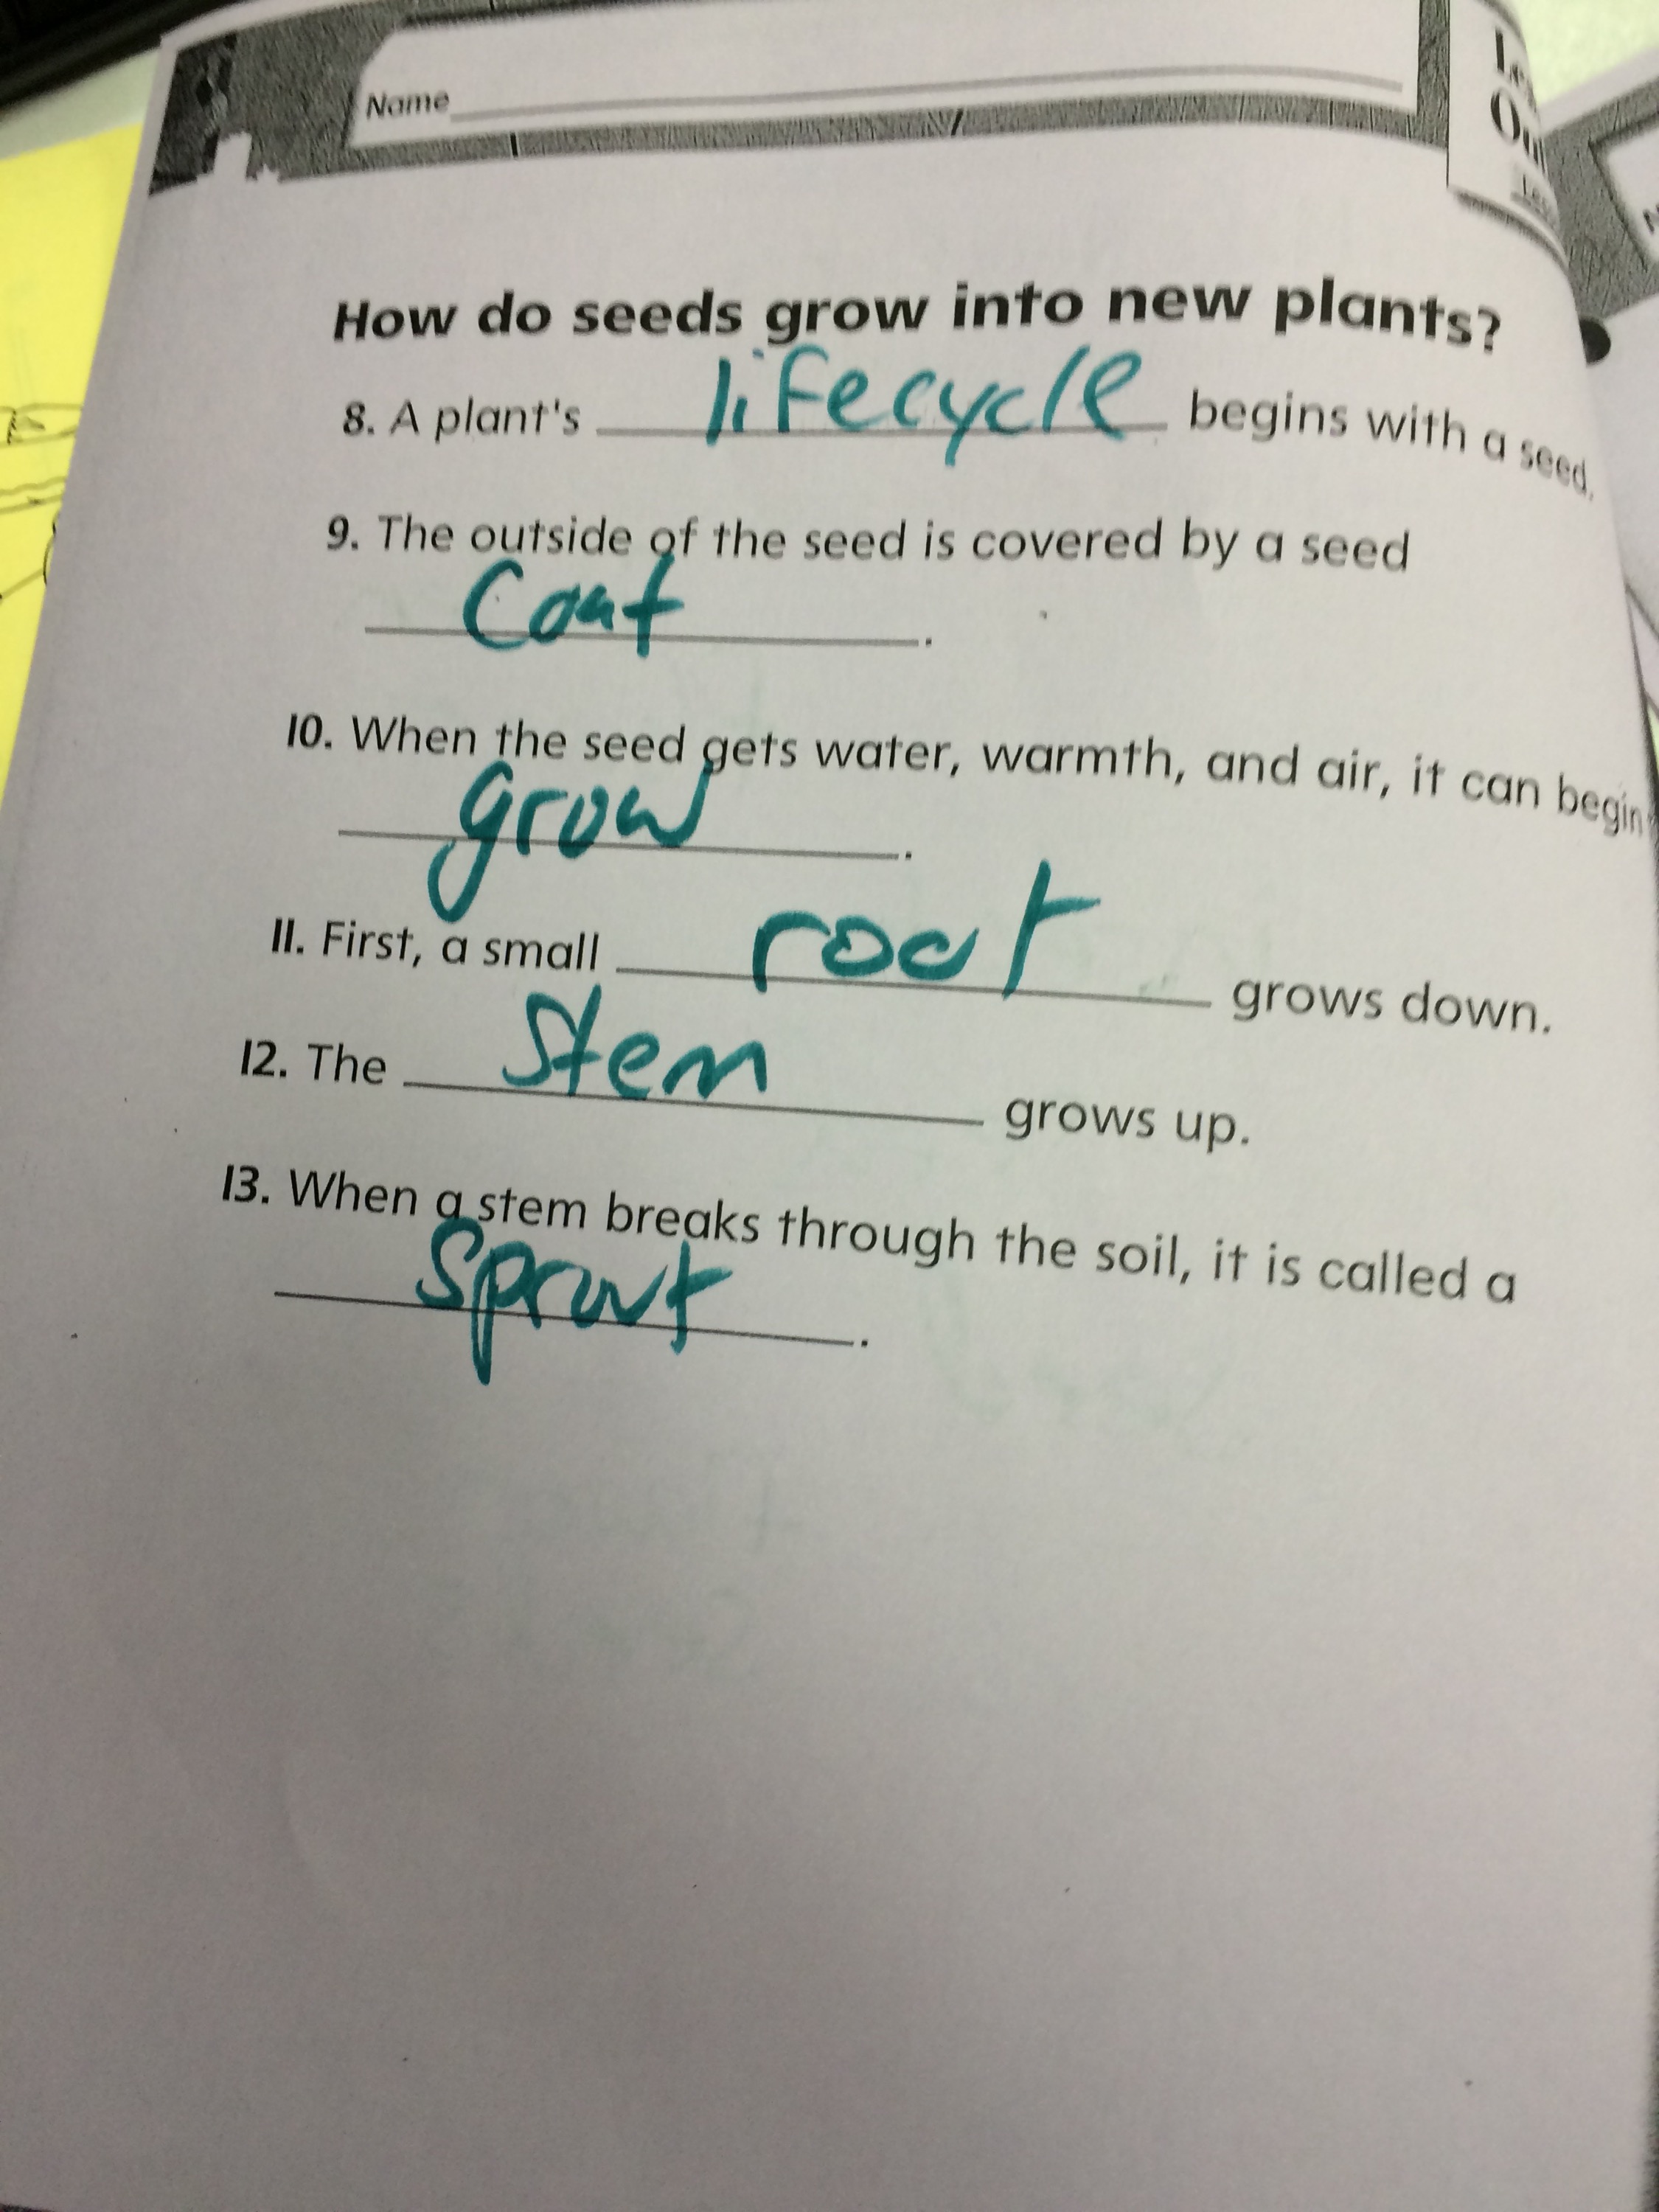 Name
How do seeds grow into new plants?
8. A plant's lifecycle begins with a seed.
9. The outside of the seed is covered by a seed
Coat.
10. When the seed gets water, warmth, and air, it can begin
grow.
11. First, a small root grows down.
12. The Stem grows up.
13. When a stem breaks through the soil, it is called a
Sprout.